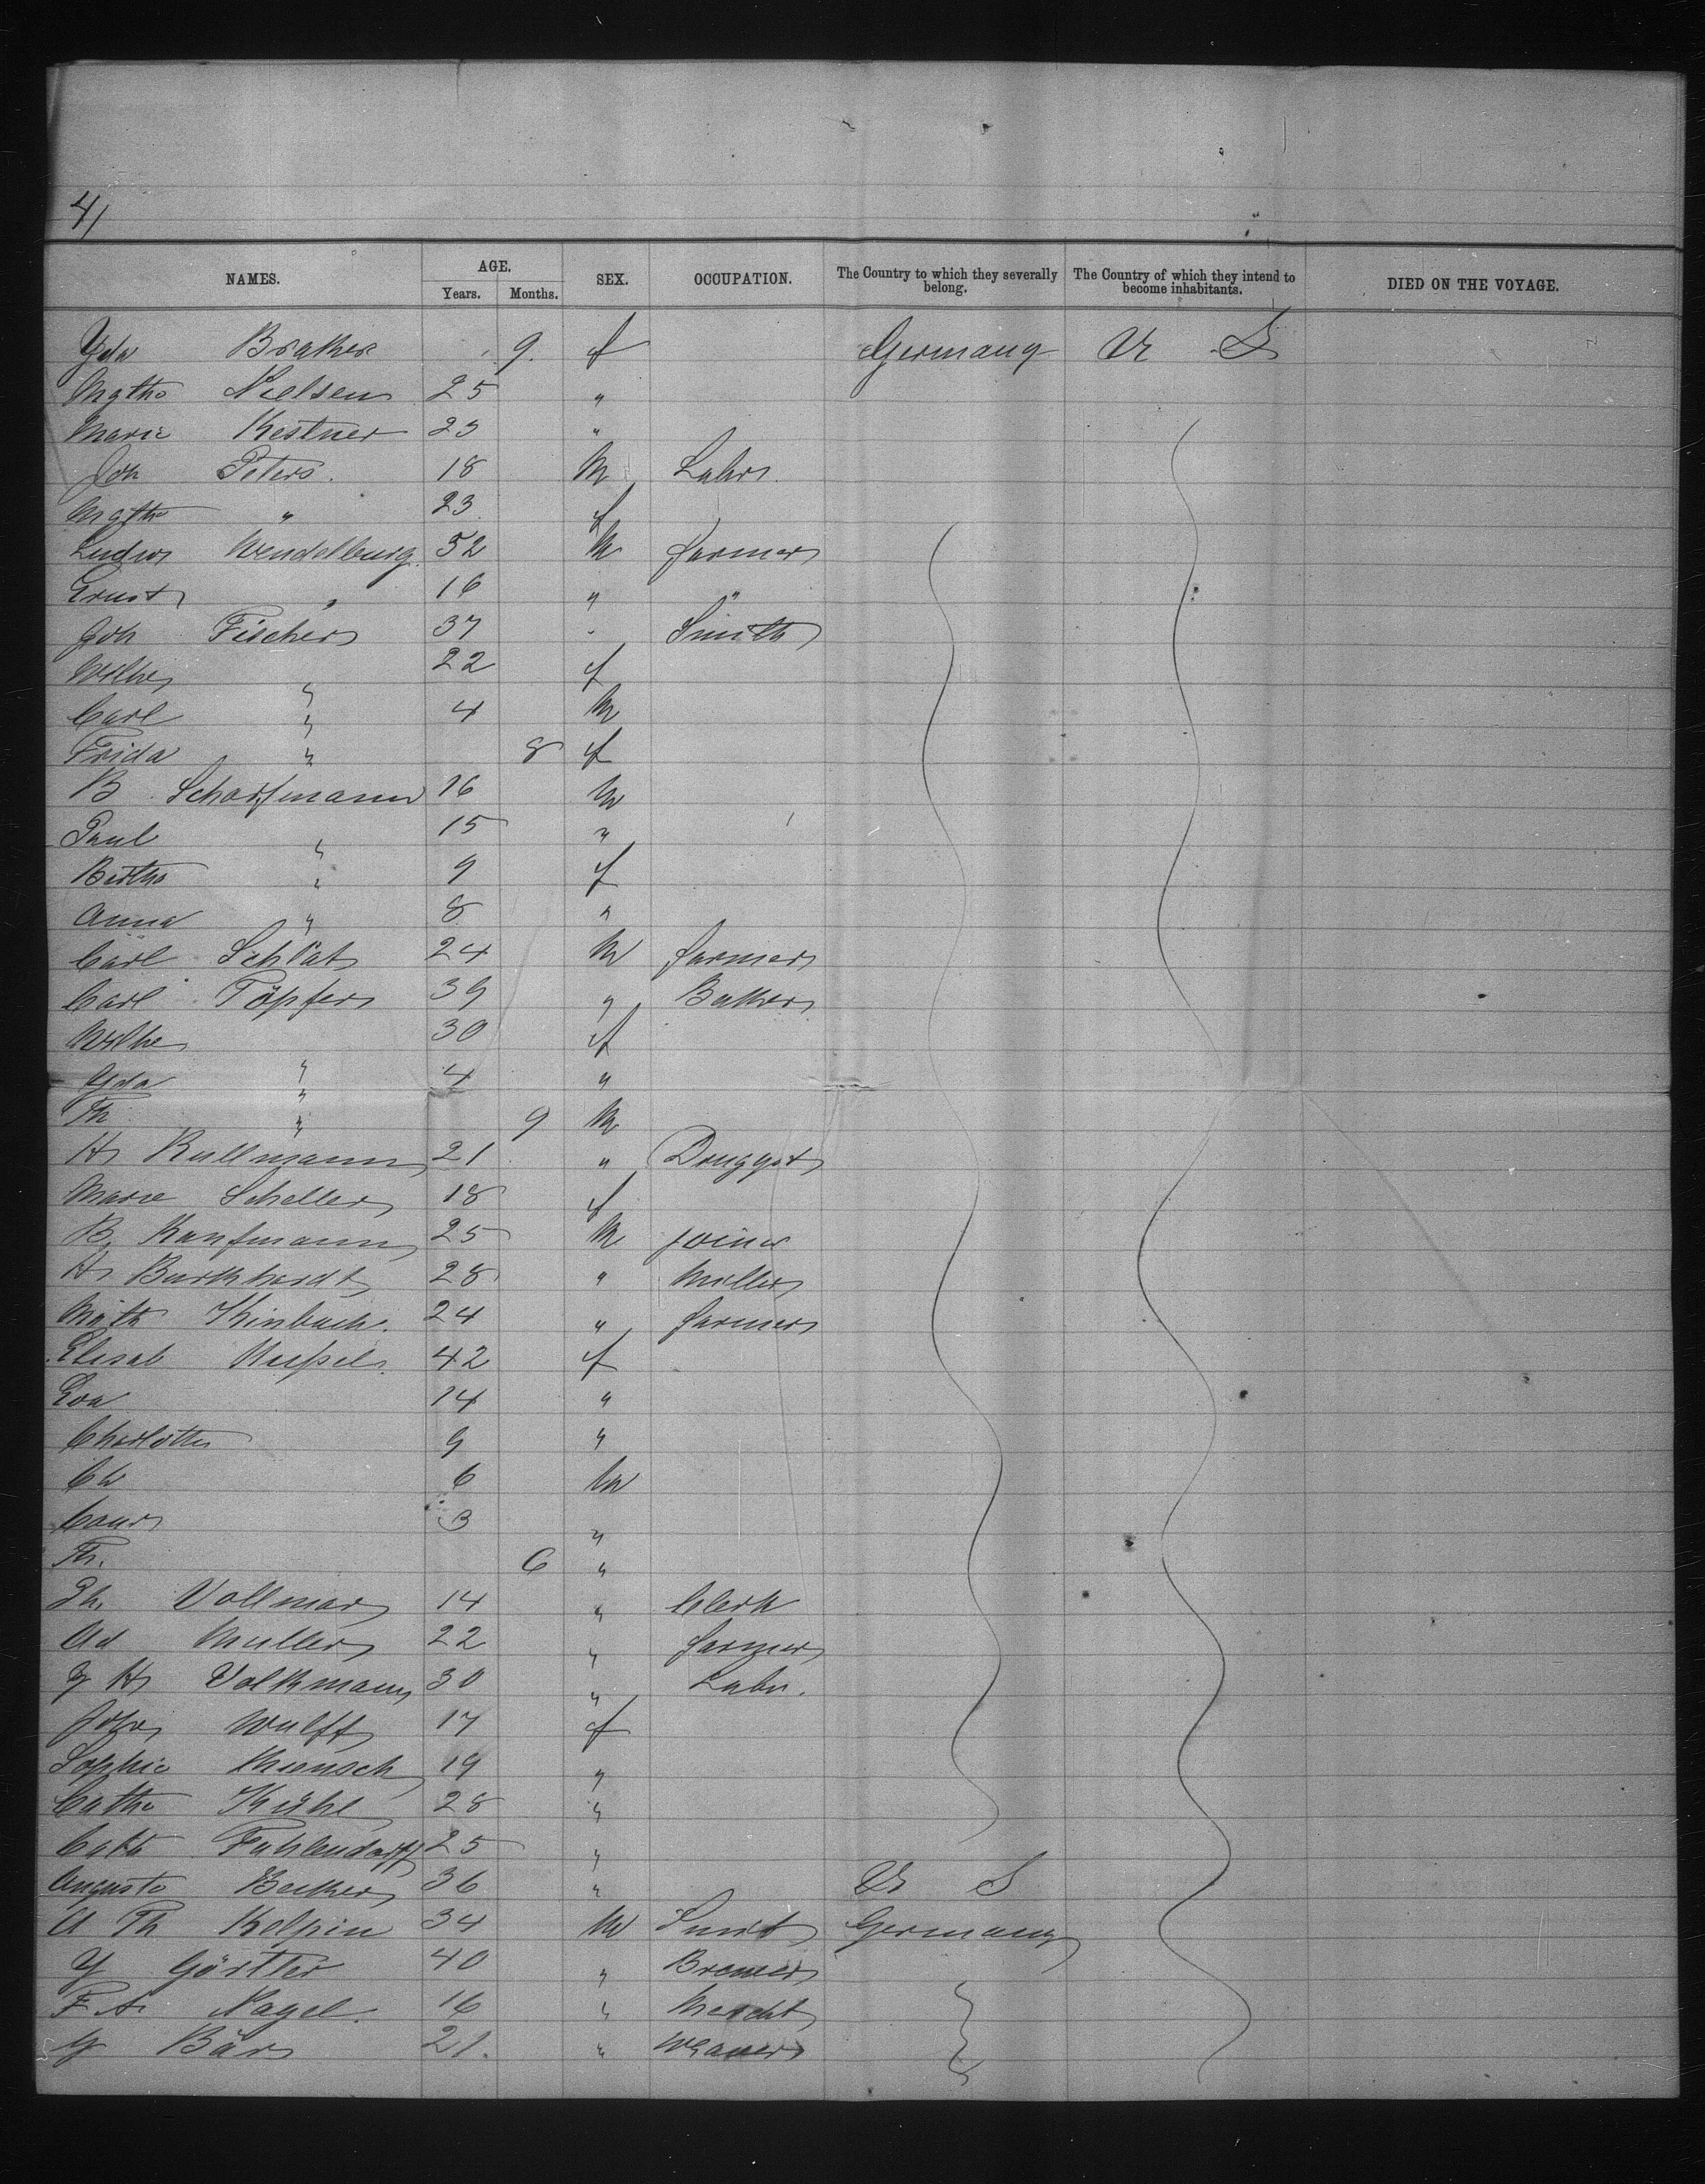 41
NAMES. AGE. Years. Months. SEX. OCCUPATION. The Country to which they severally belong. The Country of which they intend to become inhabitants. DIED ON THE VOYAGE.
Yda Braker 9. f Germany U S
Mgthe Nielsen 25 "
Marie Kestner 23 "
Joh Peters. 18 M Labr.
Mgthe " 23 f
Ludw Wendelburg. 52 M farmer
Ernst " 16 " "
Joh Fischer 37 " Smith
Wilhe " 22 f
Carl " 4 M
Frida " 8 f
B Scharfmann 16 M
Paul " 15 "
Bertha " 9 f
Anna " 8 "
Carl Schlät 24 M farmer
Carl Töpfer 39 " Baker
Wilhe " 30 f
Yda " 4 "
Th " 9 M
H Kullmann 21 " Druggst
Marie Scheller 18 f
B. Kaufmann 25 M joiner
H Burkhardt 28 " Miller
Math Kinbach. 24 " farmer
Elisab 42 f
Eva 14 "
Charlotte 9 "
Ch 6 M
Conr 3 "
Th. 6 "
Ph. Vollmar 14 " Clerk
Ad Muller 22 " farmer
J H Volkmann 30 " Labr.
Joh Wulff 17 f
Sophie Muensch 19 "
Cathe Kühl 28 "
Cath Fuhlendorff 25 "
Auguste Becker 36 " U S
A Th Kolpin 34 M Smit Germany
J Görtler 40 " Brewer
F. A. Nagel. 16 " Mercht
J Bär 21. " Weaver